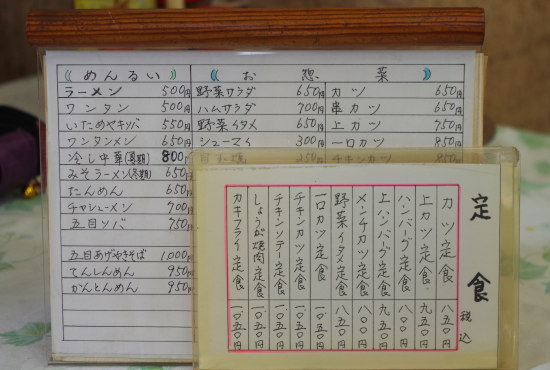 めんるい
ラーメン 500円
ワンタン 500円
いためヤキソバ 550円
ワンタンメン 650円
冷し中華(夏期) 800円
みそラーメン(冬期) 650
たんめん 650
チャシューメン 700
五目ソバ 750
五目あげやきそば 1,000円
てんしんめん 950円
かんとんめん 950円
お惣菜
野菜サラダ 650円
ハムサラダ 700円
野菜イタメ 650円
シューマイ 300円
カツ 650円
串カツ 650円
上カツ 750円
一口カツ 850円
チキンカツ 850円
定食 税込
カツ定食 八五〇円
上カツ定食 九五〇円
ハンバーグ定食 八〇〇円
上ハンバーグ定食 九五〇円
メンチカツ定食 八〇〇円
野菜イタメ定食 八五〇円
一口カツ定食 一〇五〇円
チキンカツ定食 一〇五〇円
チキンソテー定食 一〇五〇円
しょうが焼肉定食 一〇五〇円
カキフライ定食 一〇五〇円